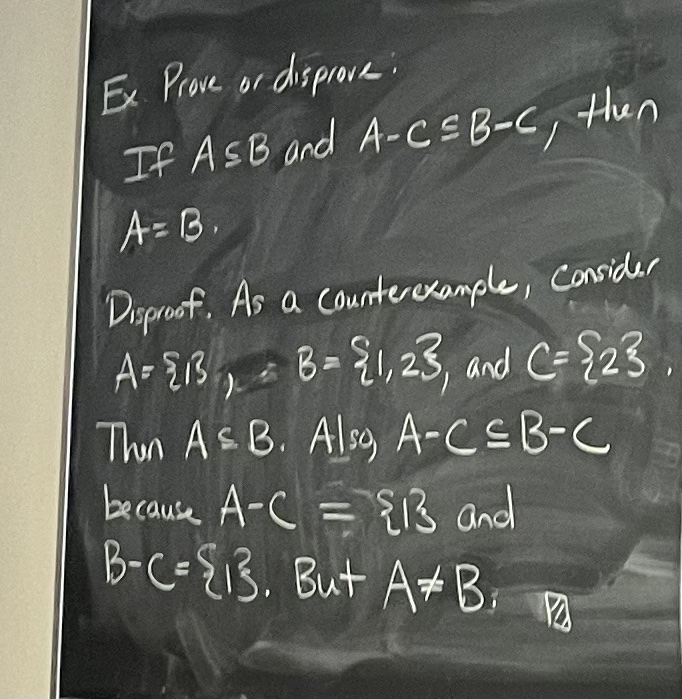 Ex. Prove or disprove:
If A⊆B and A-C⊆B-C, then
A=B.
Disproof. As a counterexample, consider
A={1}, B={1,2}, and C={2}.
Then A⊆B. Also, A-C⊆B-C
because A-C = {1} and
B-C={1}. But A≠B.